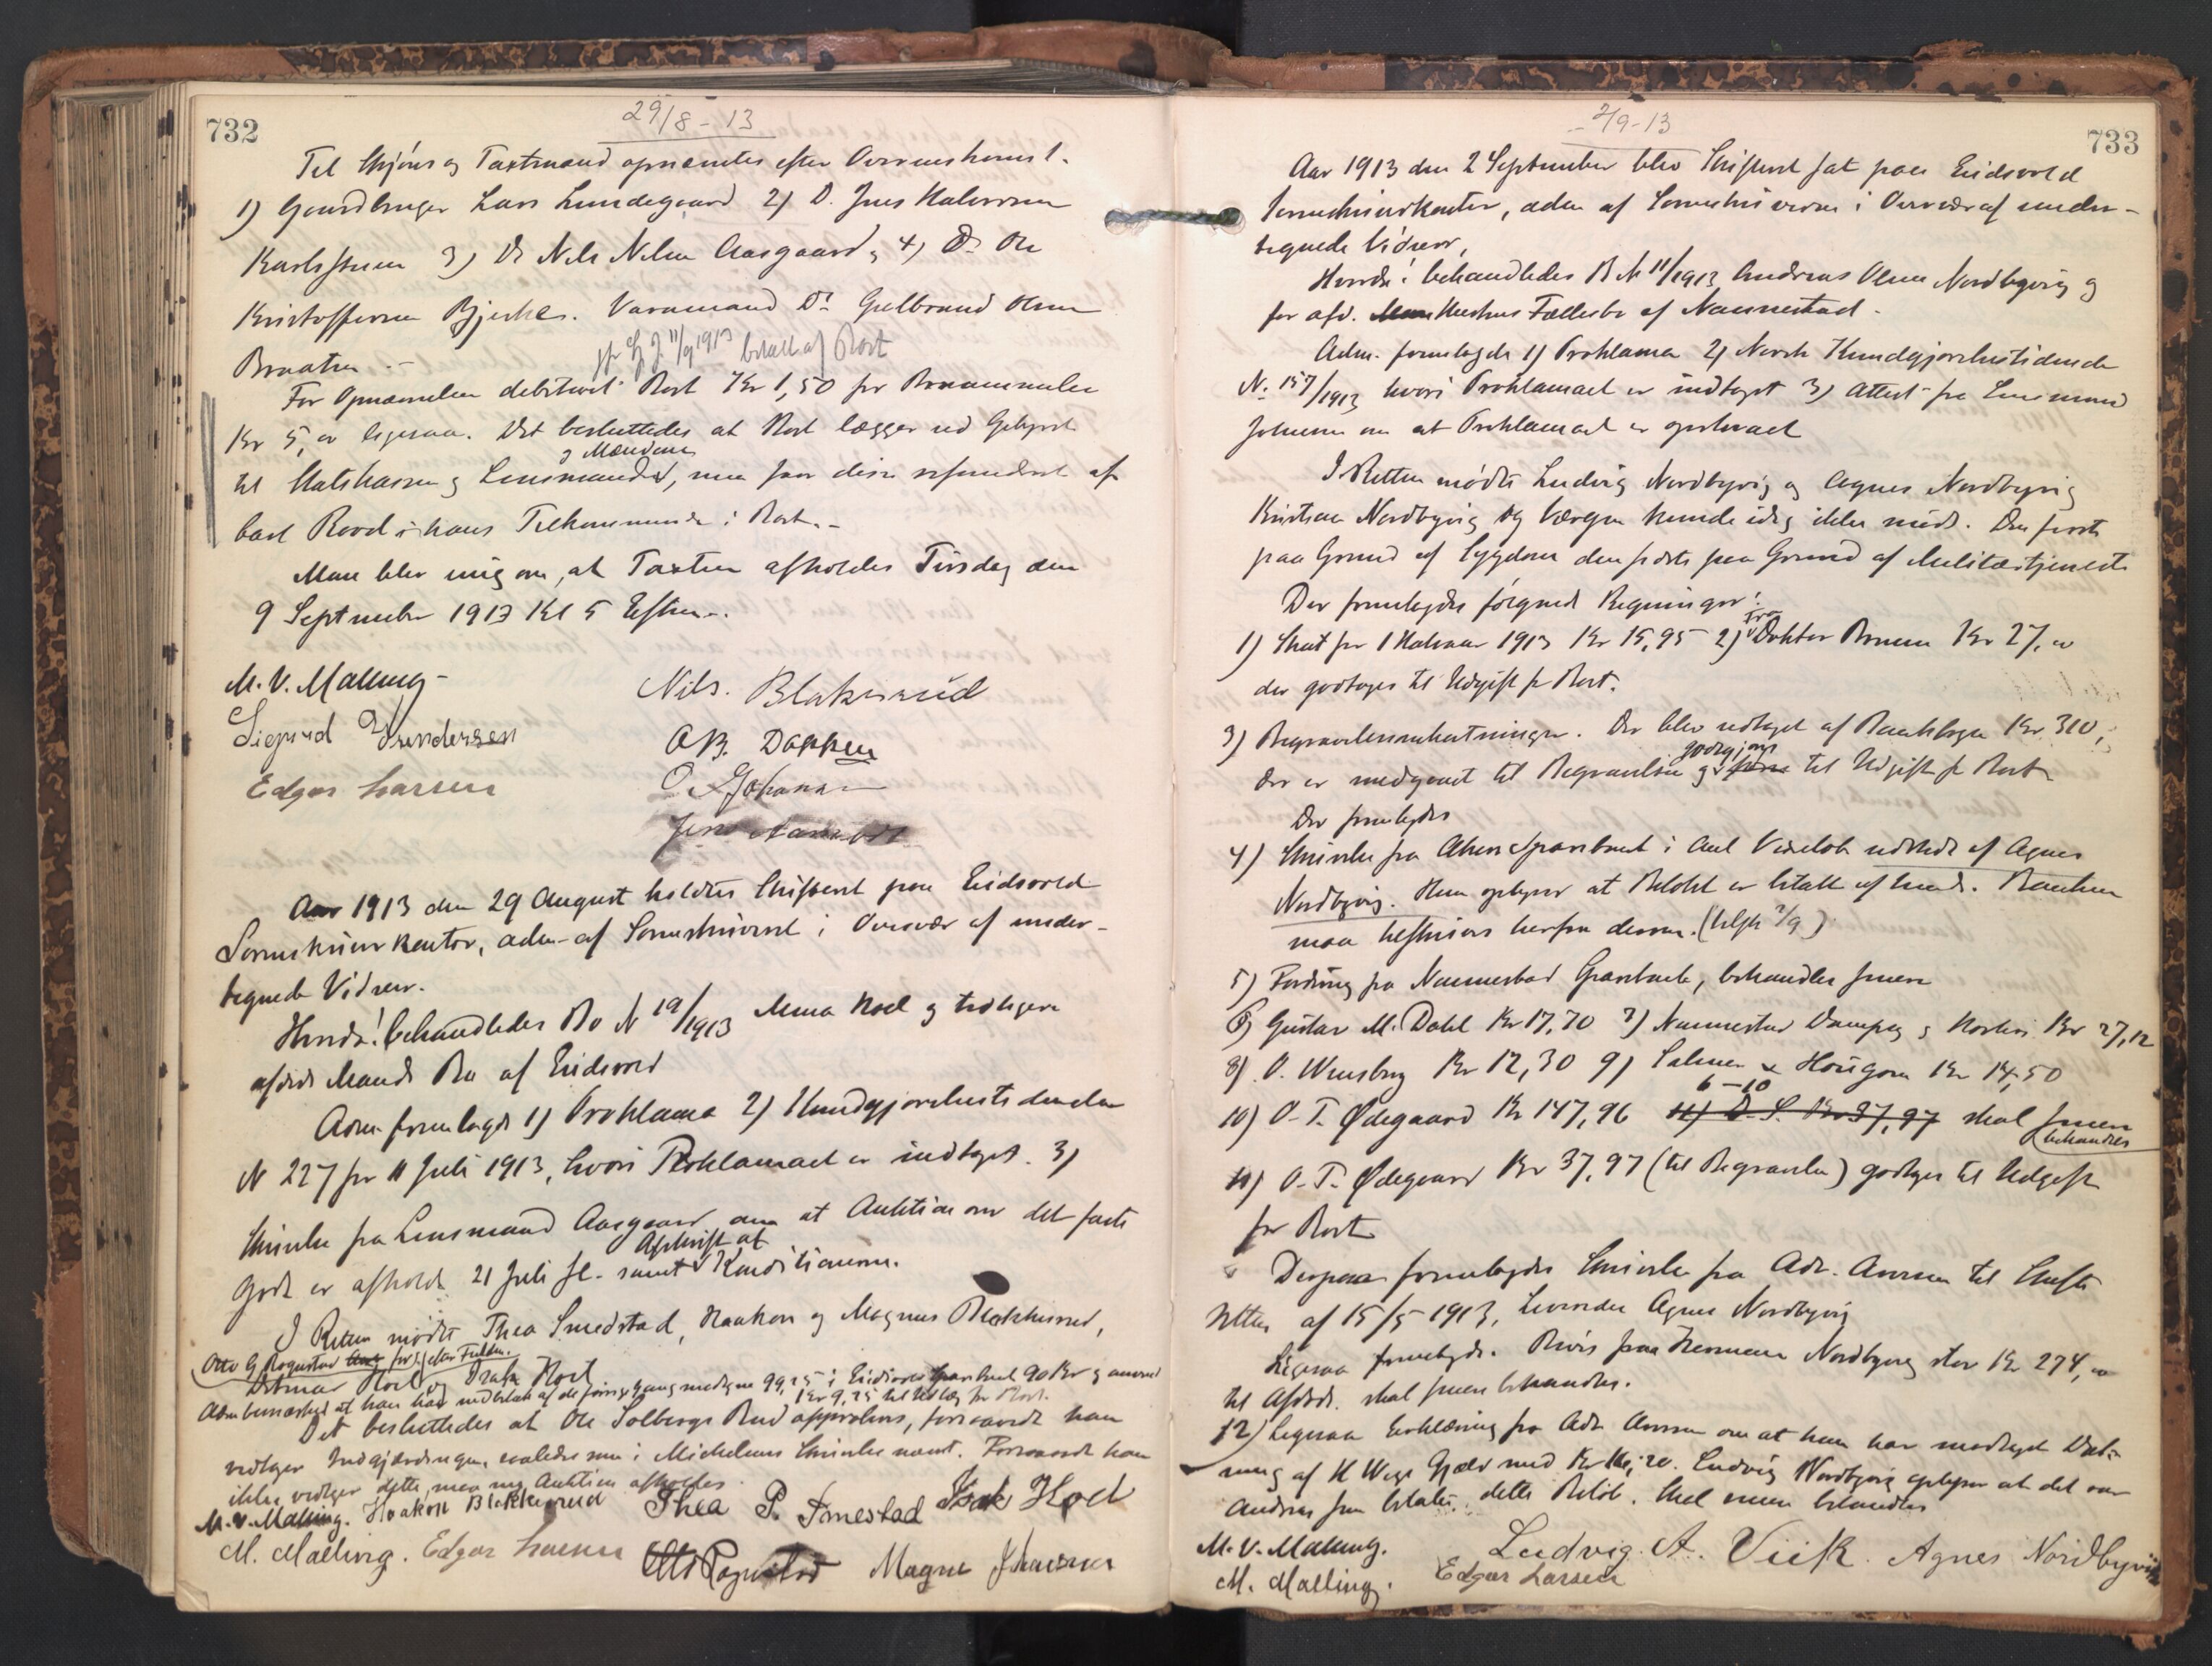 732
29/8-13
Til Skjøns og Taxtmænd opnævntes efter Overenskomst.
1) Gaardbruger Lars Lundegaard 2) D. Jens Halvorsen
Karlsstuen 3) Do Nils Nilsen Aasgaard, 4) Do Ole
Kristoffersen Bjerke. Varamand Do Gulbrand Olsen
Braaten.-
jfr 11/9 1913 betalt af Boet
For Opnævnelsen debiteret Boet Kr 1,50 for
Kr 5, ligesaa. Det besluttedes at Boet lægger ud Gebyret
og Mændene
til Statskassen og Lensmanden, men faar disse refunderet af
hans Tilkommende i Boet.-
Man blev enig om, at Taxten afholdes Tirsdag den
9 September 1913 Kl 5 Efterm.
M.V. Malling-
Nils. Blakersrud
Sigurd
Edgar Larsen
O. Johansen
Aar 1913 den 29 August holdtes Skifteret paa Eidsvold
Sorenskriverkontor, adm. af Sorenskriveren i Overvær af under-
tegnede Vidner.
Hvorda! behandledes Bo N 19/1913 Anna Hoel og tidligere
afdøde Mands Bo af Eidsvold
Adm. fremlagde 1) Proklama 2) Kundgjørelsestidende
N 227 for 11 Juli 1913, hvori Proklamaet er indtaget. 3)
Skrivelse fra Lensmand Aasgaard om at Auktion over det faste
Afskrift af
Gods er afholdt 21 Juli sl. samt Konditionerne.
I Retten mødte Thea Smedstad, Haakon og Magnus Blakkesrud,
Otto G Rognstad for efter Fuldm.
Ditmar Hoel og Isak Hoel
Adm bemærket at han har indbetalt af de forrige Gang modtagne 99,25 i Eidsvold Sparebank 90 Kr og anvendt
Kr 9,25 til Udlæg for Boet.
Det besluttedes at Ole Solbergs Bud approberes, forsaavidt han
vedtager Inddrivelsen, saaledes som i Michelsens Skrivelse nævnt. Forsaavidt han
ikke vedtager dette, maa ny Auktion afholdes.
M.V. Malling. Haakon Blakkesrud Thea P. Smestad Isak Hoel
M. Malling. Edgar Larsen Otto Rognstad Magne Johansen
733
2/9-13
Aar 1913 den 2 September blev Skifteret sat paa Eidsvold
Sorenskriverkontor, adm. af Sorenskriveren i Overvær af under-
tegnede Vidner,
Hvorda! behandledes B N 11/1913 Andreas Olsen Nordbyvig og
før afd. Hustrus Fællesbo af Nannestad.
Adm. fremlagde 1) Proklama 2) Norsk Kundgjørelsestidende
N. 157/1913 hvori Proklamaet er indtaget 3) Attest fra Lensmand
Johnsen om at Proklamaet er opslaaet
I Retten mødte Ludvig Nordbyvig og Agnes Nordbyvig
Kristian Nordbyvig og Værgen kunde idag ikke møde. Den første
paa Grund af Sygdom den sidste paa Grund af Militærtjeneste
Der fremlagdes følgende Regninger:
fra
1) Skat for 1 Halvaar 1913 Kr 15,95 2) Doktor Kr 27,00
der godtages til Udgift for Boet.
3) Begravelsesomkostninger. Der blev udtaget af Bankbogen Kr. 310,
godtgjøres
der er medgaaet til Begravelsen og til Udgift for Boet
Der fremlagdes
4) Skrivelse fra Akers Sparebank i Anl Vexelobl udstedt af Agnes
Nordbyvig. Hun oplyser at Beløbet er betalt af hende. Banken
maa tilskrives herfra derom. (tilskr 2/9)
5) Fordring fra Nannestad Sparebank, behandles senere
6) Gustav M. Dahl Kr 17,70 7) Nannestad Dampsag og Høvleri Kr 27,12
8) O. Wensberg Kr 12,30 9) Salmer & Hougom Kr 14,50
6-10
10) O.T. Ødegaard Kr 147,96 11) D. S. Kr 37,97 skal senere
behandles
11) O.T. Ødegaard Kr 37,97 (til Begravelse) godtages til Udgift
for Boet
Derpaa fremlagdes Skrivelse fra Adv. Aursen til Skifte
retten af 15/5 1913, hvorunder Agnes Nordbyvig
Ligesaa fremlagdes. Bevis fra Hermann Nordbyvig stor Kr 274,00
til Afdøde. skal senere behandles.
12) Ligesaa Erklæring fra Adv. Aursen om at han har modtaget Dæk-
ning af H Wigs Gjæld med Kr. Ludvig Nordbyvig oplyser at det var
Andreas som betalte dette Beløb. Skal senere behandles
M.V. Malling. Ludvig. A. Viik. Agnes Nordbyvik
M. Malling. Edgar Larsen